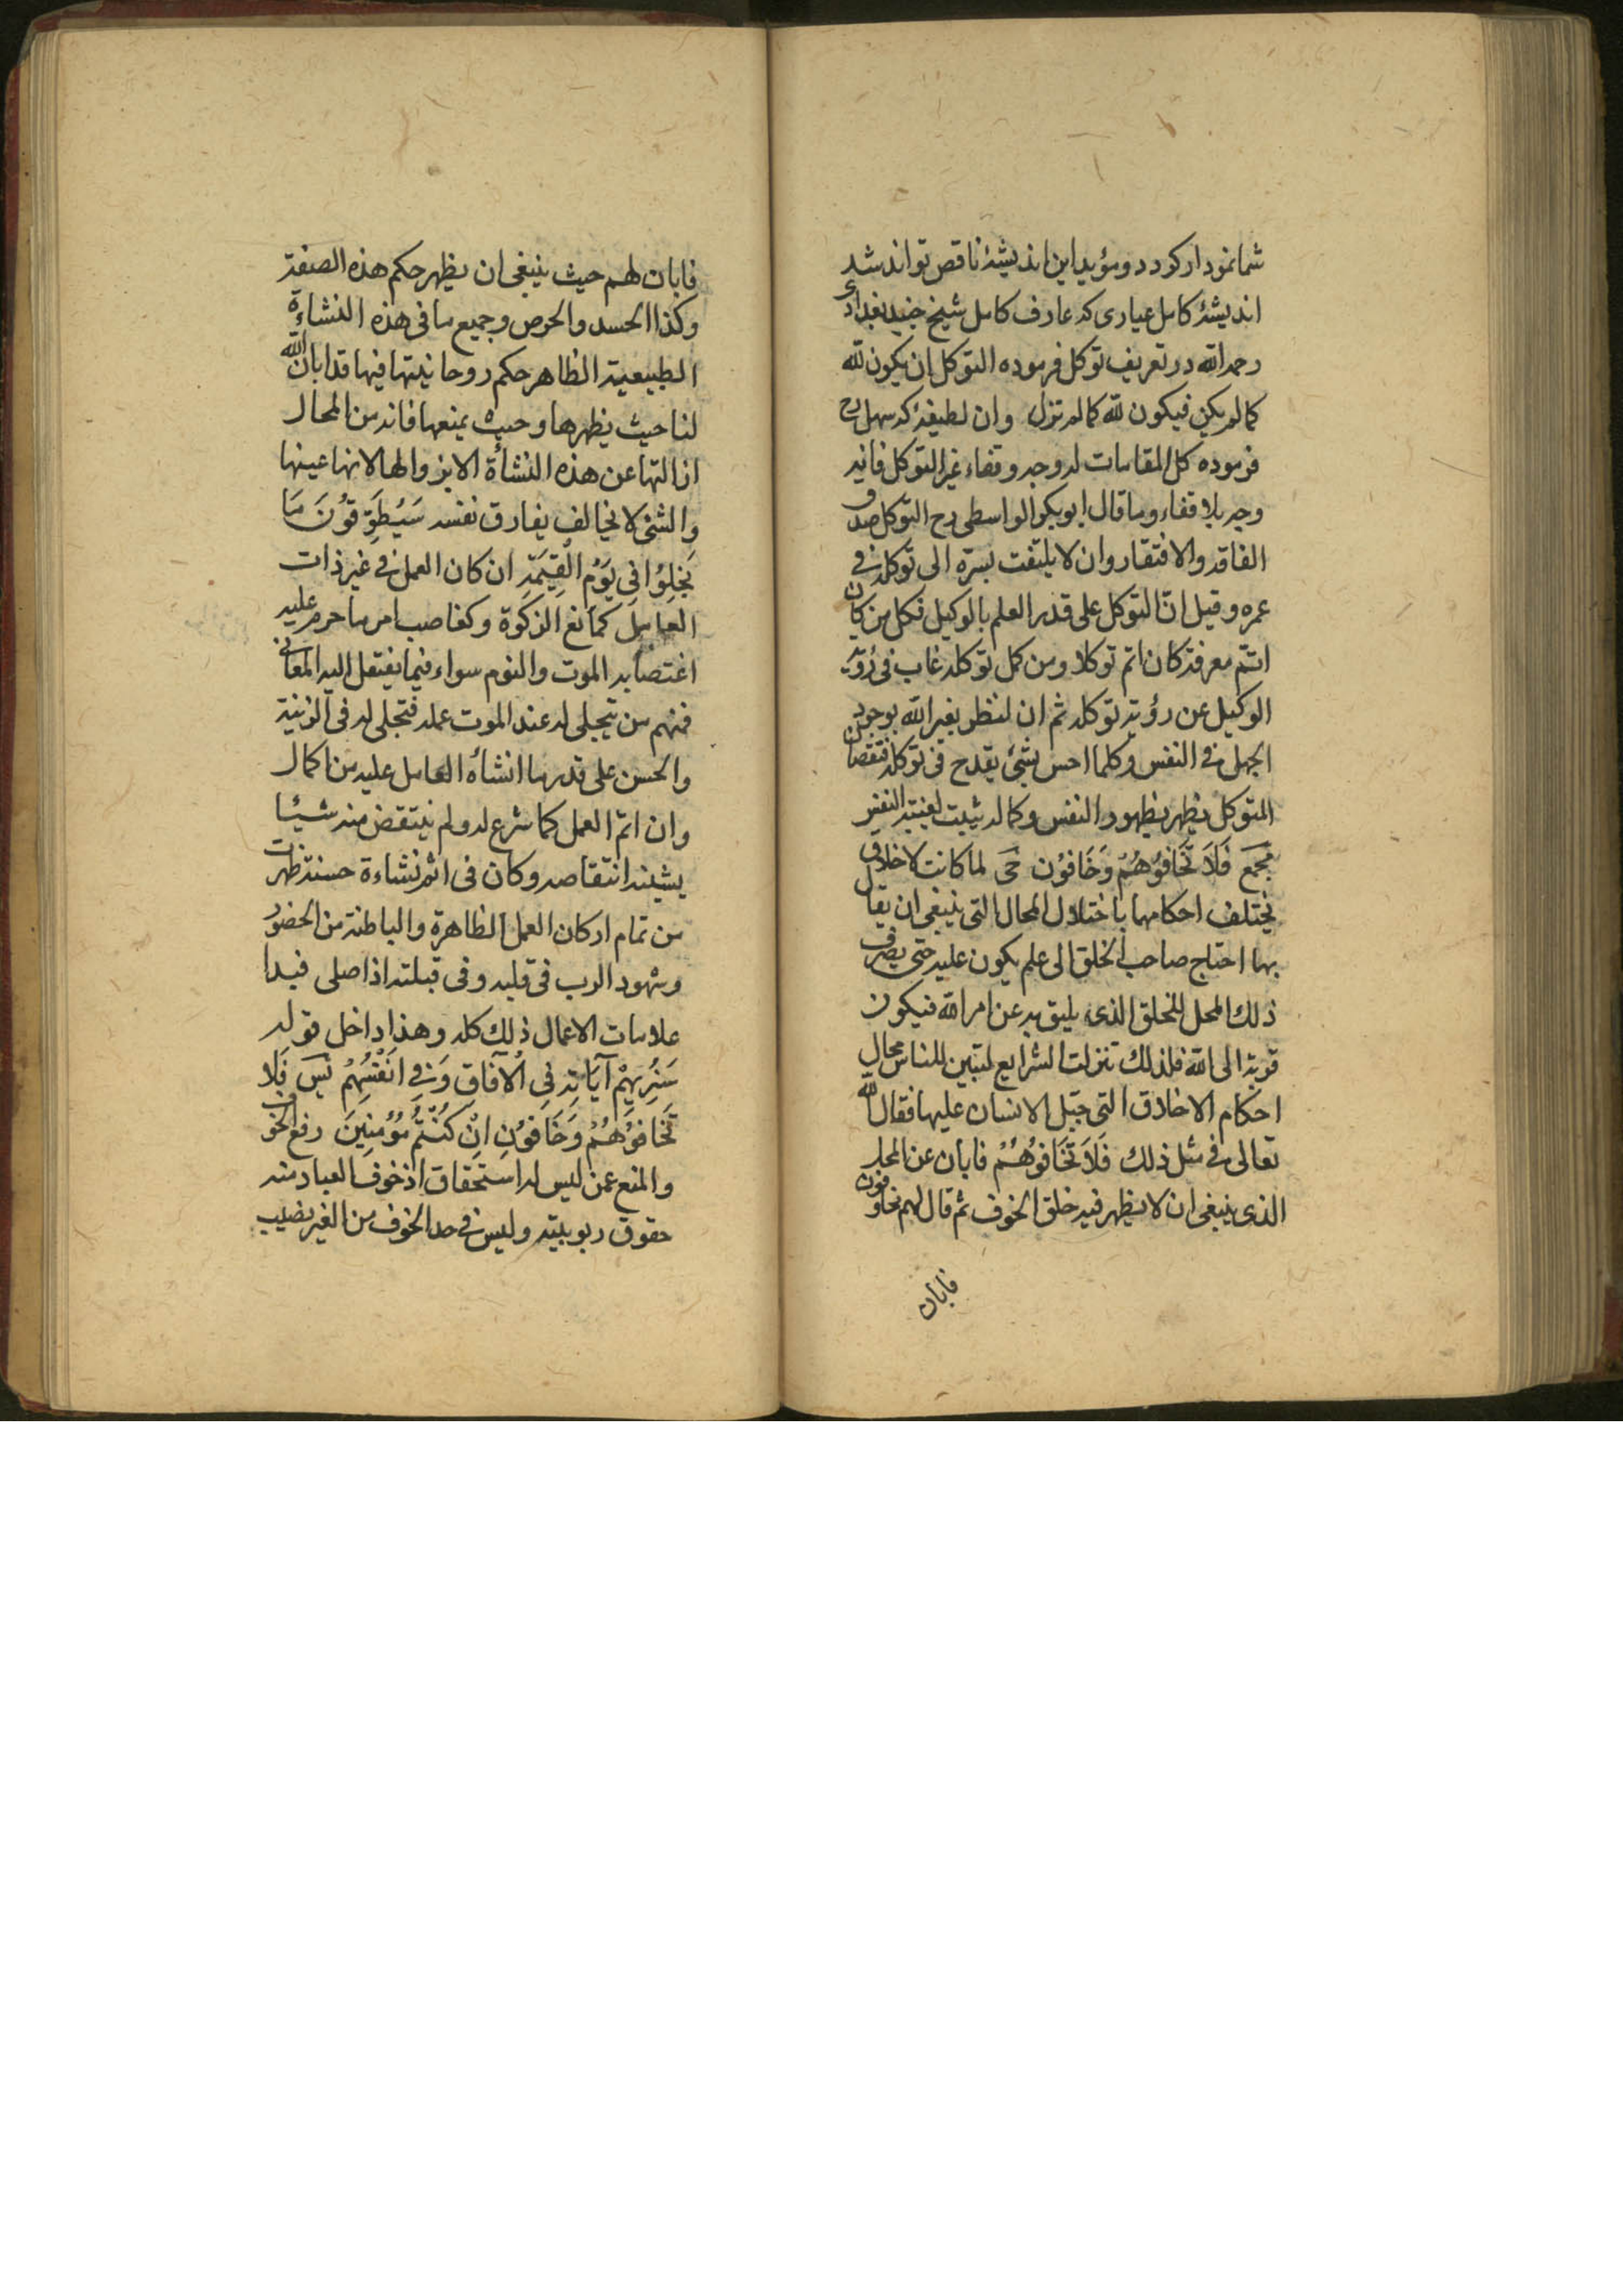 شما نمودار كردد و مؤيد اين انديشۀ ناقص تواند شد
انديشۀ كامل عيارى كه عارف كامل شيخ جنيد بغدادى
رحمه الله در تعريف توكل فرموده التوكل ان يكون لله
كما لم يكن فيكون لله كما لم تزل وان لطيفۀ كه سهل رح
فرموده كل المقامات له وجه وقفاء غير التوكل فانه
وجه بلا قفاء وما قال ابو بكر الواسطى رح التوكل صدق
الفاقه والافتقار وان لا يلتفت بسرّه الى توكله في
عمره وقيل انّ التوكل على قدر العلم بالوكيل فكل من كان
اتم معرفة كان اتم توكلا ومن كمل توكله غاب في رؤية
الوكيل عن رؤية توكله ثم ان لنظر بغير الله بوجود
الجهل في النفس وكلما احس بشئ يقدح في توكله فنقصان
المتوكل يظهر بظهور النفس وكماله يثبت لغيبة النفس
مجمع فَلَا تَخَافُوْهُمْ وَخَافُوْن حَى لما كانت لاخلاق
يختلف احكامها باختلال المحال التى ينبغى ان يقال
بها احتاج صاحب الخلق الى علم يكون عليه حتى يصرف
ذلك المحل للخلق الذى يليق به عن امر الله فيكون
قربة الى الله فلذلك تنزلت الشرايع لتبين للناس محال
احكام الاخلاق التى جبّل الانسان عليها فقال الله
تعالى في مثل ذلك فَلَا تَخَافُوْهُمْ فابان عن المحل
الذى ينبغى ان لا يظهر فيه خلق الخوف ثم قال لهم خافون
فابان
فابان لهم حيث ينبغى ان يظهر حكم هذه الصفة
وكذا الحسد والحرص وجميع ما فى هذه النشاءة
الطبيعية الظاهر حكم روحانيتها فيها قد ابان الله
لنا حيث يظهرها وحيث يمنعها فانه من المحال
ازالتها عن هذه النشأة الا بزوالها لانها عينها
والشئ لا يخالف يفارق نفسه سَيُطَوَّقُوْنَ مَا
بَخِلُوْا فِى يَوْمِ الْقِيَمَةِ ان كان العمل في غير ذات
العامل كمانع الزكوة وكغاصب امر ما حرم عليه
اغتصابه الموت والنوم سواء فيما يفتقل اليه المعانى
فمنهم من تتجلى له عند الموت عمله فتجلى له فى الزينة
والحسن على قدر ما انشأه العامل عليه من اكمال
وان اتم العمل كما شرع له ولم ينتقض منه شيئا
يشينه انتقاصه وكان فى اتم نشاءة حسنة ظهرت
من تمام اركان العمل الظاهرة والباطنة من الحضور
وشهود الرب فى قلبه وفى قبلته اذا صلى فبدا
علامات الاعمال ذلك كله وهذا داخل قوله
سَنُرِيهِمْ آيَاتِهِ فِى الْآفَاقِ وَفِي اَنْفُسِهِمْ نيس فَلَا
تَخَافُوْهُمْ وَخَافُوْنِ اِنْ كُنْتُمْ مُؤْمِنِيْنَ رفع الخوف
والمنع عمن ليس له استحقاق اذ خوف العباد منه
حقوق ربوبيته وليس في حد الخوف من الغير نصيب